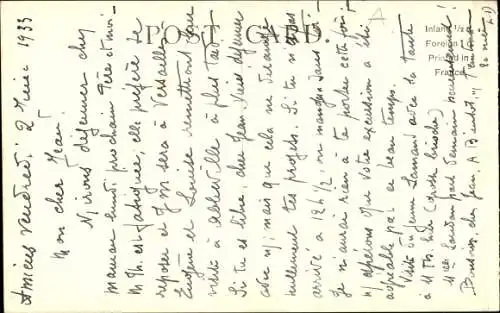 POST CARD.
Inland 1/2 d
Foreign 1 d
Printed in
France
Amiens Vendredi 2 Juin 1933
Mon cher Jean!
N/ irons déjeuner chez
maman lundi prochain Père et moi
M Th. est fatiguée, elle préfère se
reposer et J M sera à Versailles
Eugène et Louise remettront leur
visite à Abbeville à plus tard
Si tu es libre, cher Jean, viens déjeuner
avec n/; mais que cela ne dérange
nullement tes projets. Si tu n'es pas
arrivé à 12 h 1/2, on mangera sans toi
Je n'aurai rien à te porter cette fois
N/ espérons que votre excursion a été
agréable par ce beau temps.
Visite du jeune Lamand avec sa tante
à M Th. hier (grosse brioche)
Melle part demain
Bonsoir, cher Jean. A Bientôt,